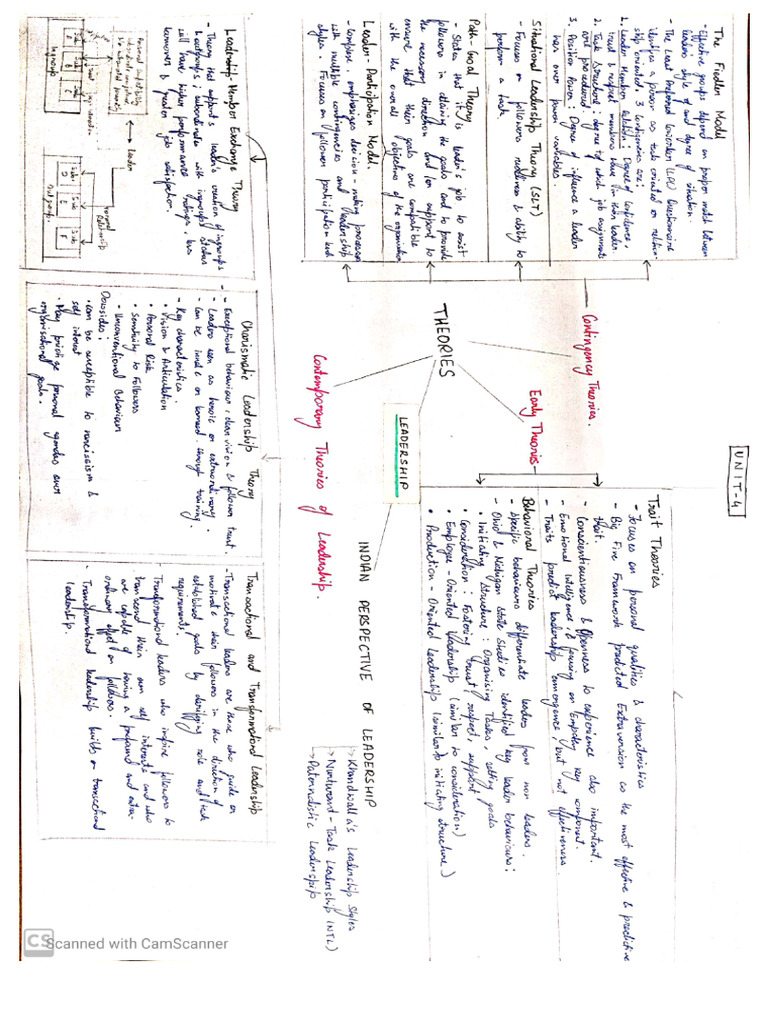 UNIT-4
LEADERSHIP
THEORIES
Contingency Theories.
Early Theories
Contemporary Theories of Leadership.
The Fiedler Model
- Effective groups depend on proper match between
leaders style of and degree of situation.
- The Least Preferred Coworker (LPC) Questionnaire
identifies a person as task oriented or relation-
ship oriented. 3 contigencies are:
1. Leader Member Relation: Degree of confidence,
trust & respect members have in their leader
2. Task Structure: degree to which job assignments
are procedured.
3. Position Power: Degree of influence a leader
has over power variables.
Situational Leadership Theory (SLT)
- Focuses on followers readiness & ability to
perform a task.
Path-Goal Theory
- States that it is leader's job to assist
followers in attaining the goals and to provide
the necessary direction and/or support to
ensure that their goals are compatible
with the overall objectives of the organisation
Leader-Participation Model.
- emphasizes decision-making processes
with multiple contingencies and leadership
styles. Focuses on follower participation
Trait Theories
- Focuses on personal qualities & characteristics
- Big Five Framework predicted Extraversion as the most effective & predictive
trait.
- Conscientiousness & Openness to experience also important.
- Emotional Intelligence is focusing on Empathy key component.
- Traits predict leadership emergence, but not effectiveness.
Behavioral Theories
- Specific behaviours differentiate leaders from non leaders.
- Ohio & Michigan State Studies identified key leader behaviours:
• Initiating Structure: Organising Tasks, setting goals
• Consideration: Fostering trust, respect, support
• Employee-Oriented Leadership (similar to consideration)
• Production-Oriented Leadership (similar to initiating structure)
INDIAN PERSPECTIVE OF LEADERSHIP
→ Khandwalla's Leadership Styles
→ Nurturant-Task Leadership (NTL)
→ Paternalistic Leadership
Leadership Member Exchange Theory
- Theory that supports leader's creation of ingroups
& outgroups; subordinate with ingroups status
will have higher performance ratings, less
turnover & greater job satisfaction.
Leader
Formal
Relationship
Ingroup
Out group
Charismatic Leadership Theory
- Exceptional behaviour, clear vision & follower trust.
- Leaders seen as heroic or extraordinary.
- Can be innate or learned through training.
- Key characteristics:
• Vision & Articulation
• Personal Risk
• Sensitivity to Followers
• Unconventional Behaviour
Downsides:
• can be susceptible to narcissism &
self interest
• May prioritize personal agendas over
organisational goals.
Transactional and Transformational Leadership
- Transactional leaders are those who guide or
motivate their followers in the direction of
established goals by clarifying role and task
requirements.
- Transformational leaders who inspire followers to
transcend their own self interests and who
are capable of having a profound and extra-
ordinary effect on followers.
- Transformational leadership builds on transactional
leadership.
CS Scanned with CamScanner